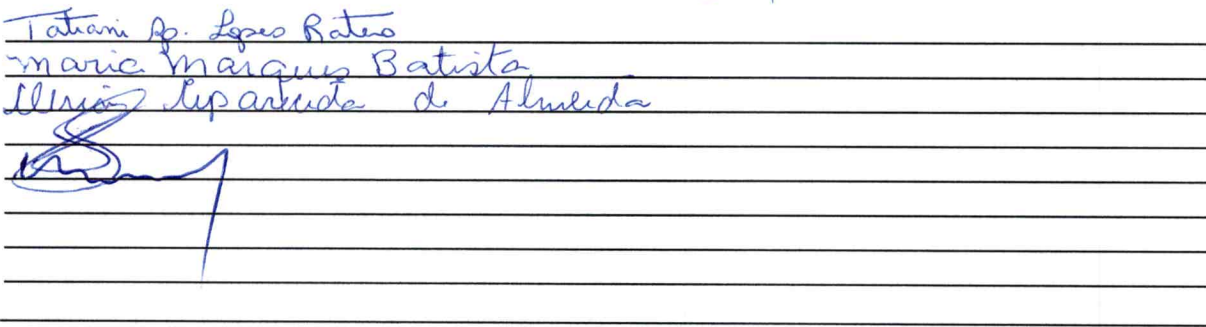 Tatiani Ap. Lopes Ratero
Maria Marques Batista
Aparecida de Almeida